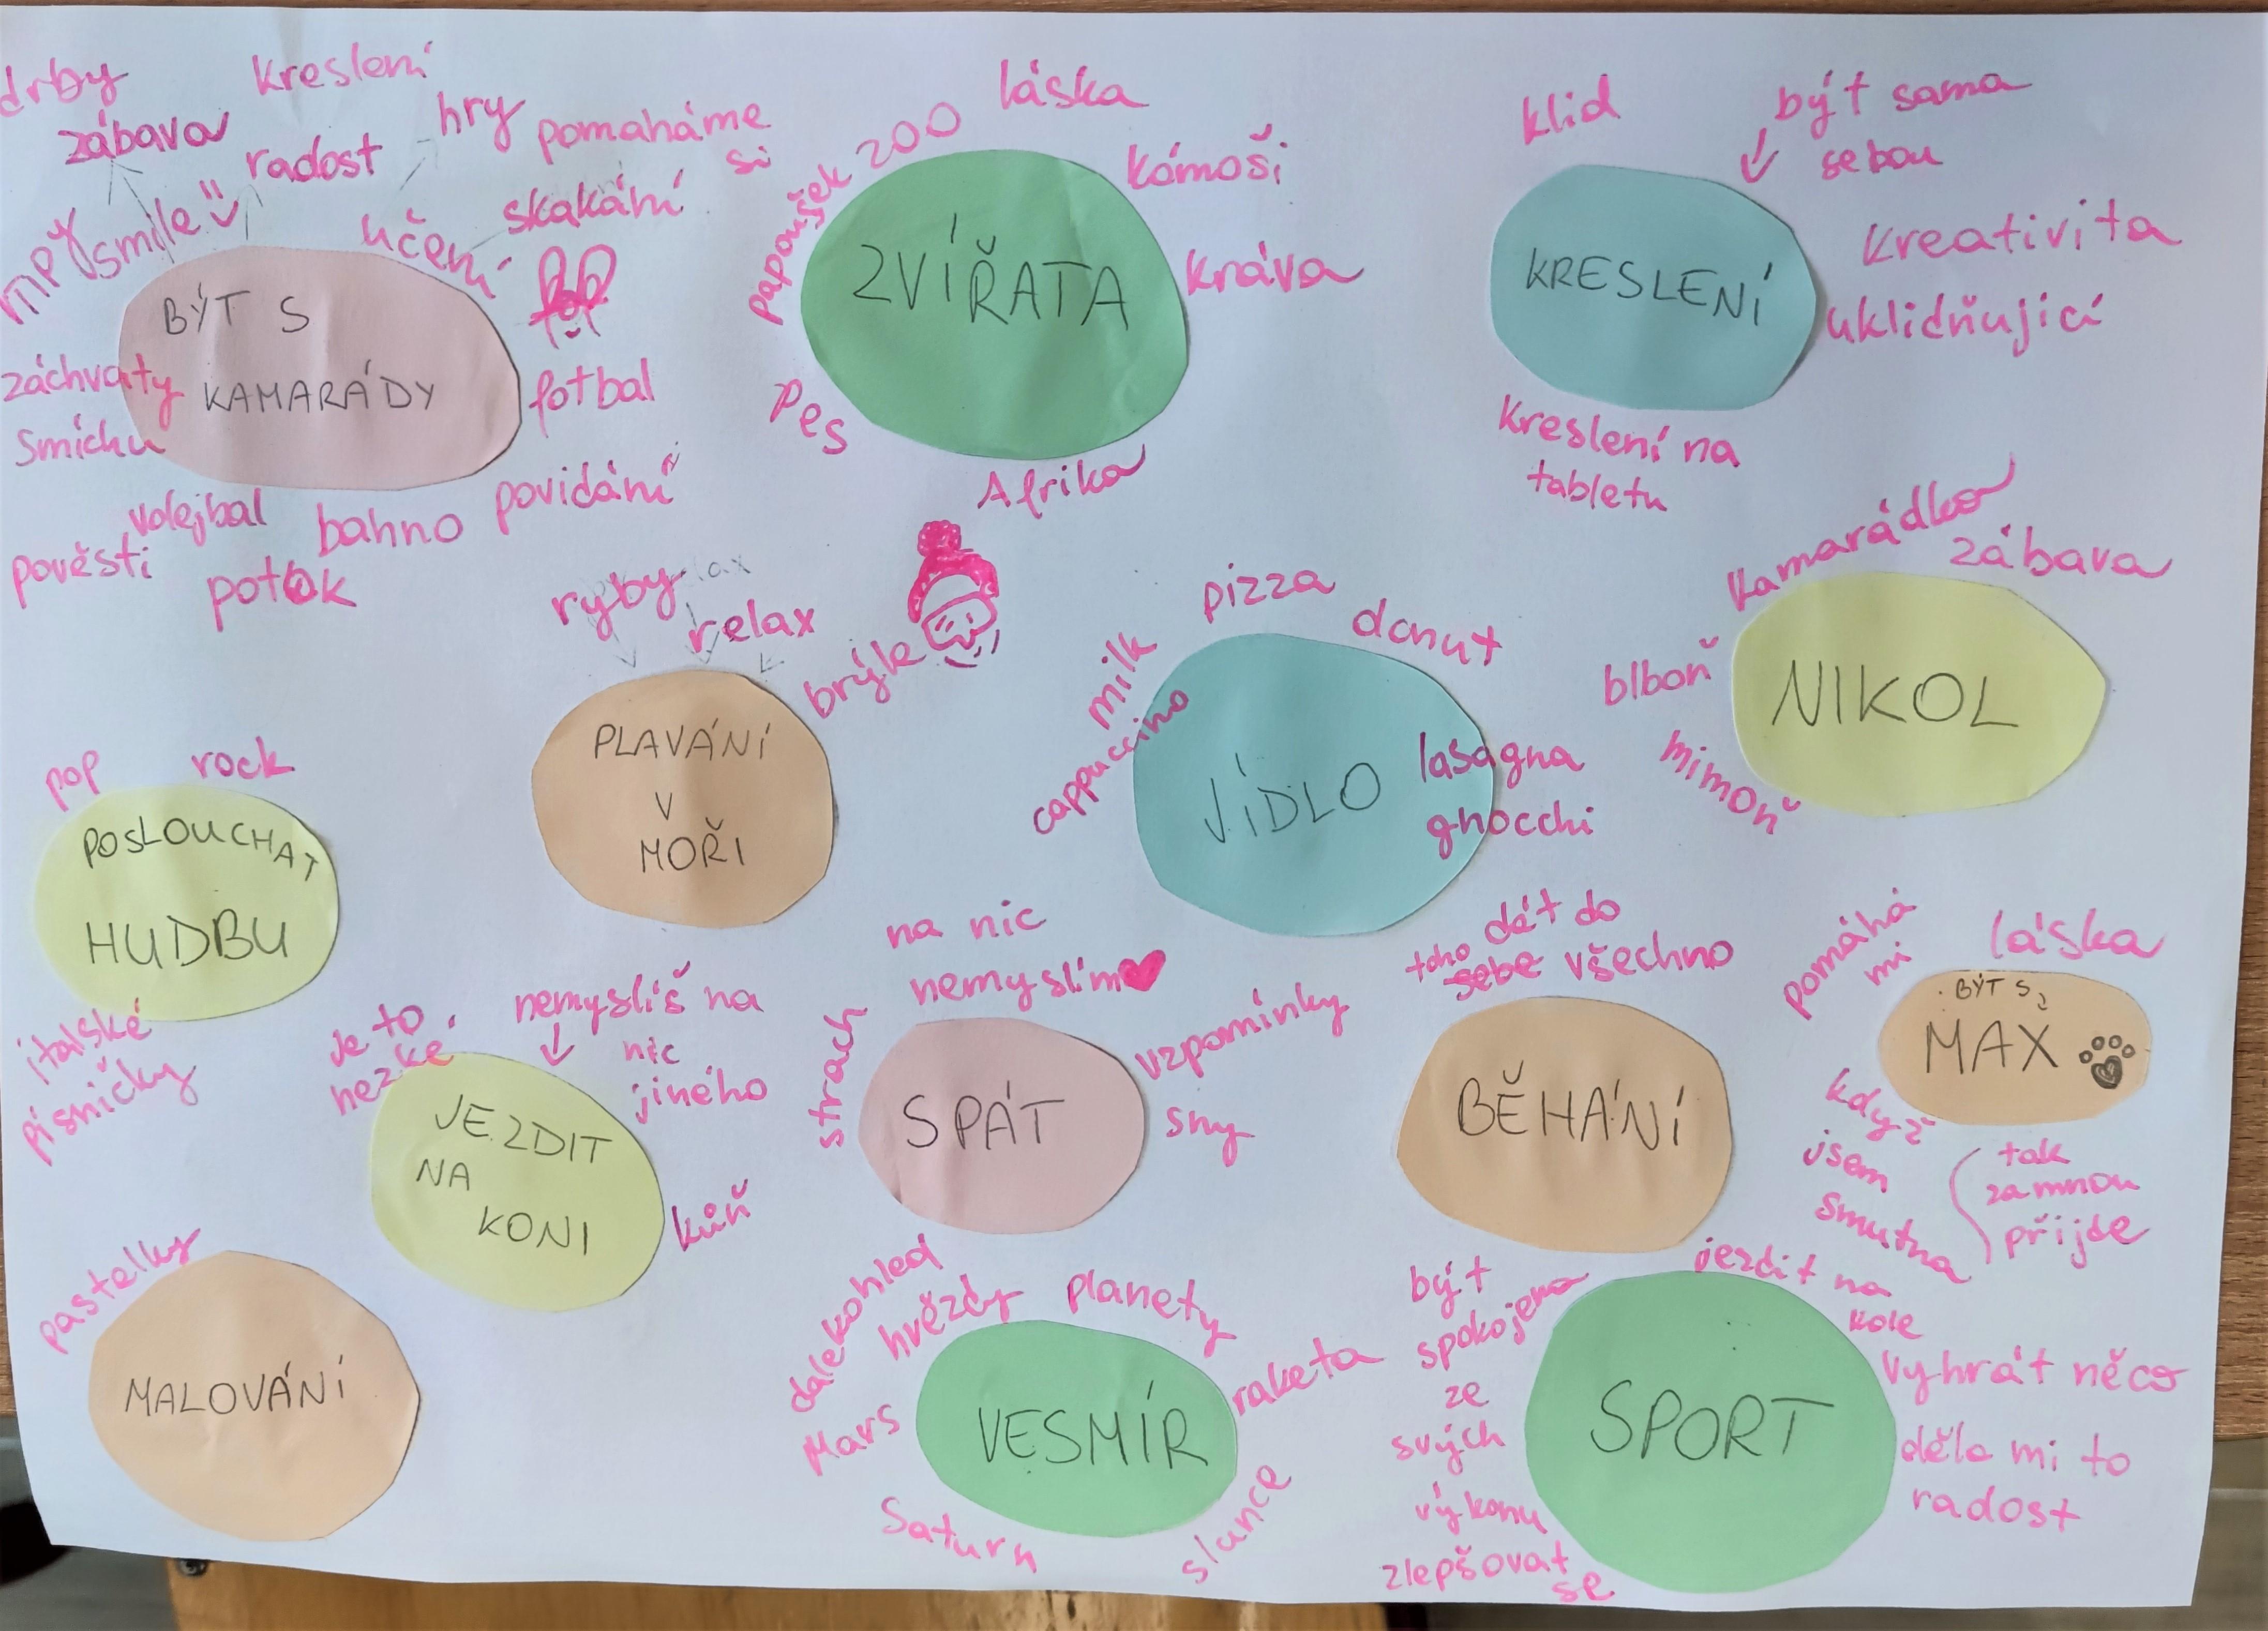 drby
zábava
kreslení
radost
hry
pomaháme
si
smile
učení
skakání
BÝT S
KAMARÁDY
záchvaty
smíchu
fotbal
volejbal
bahno
povidání
pověsti
potok
papoušek
zoo
láska
kámoši
kráva
ZVÍŘATA
pes
Afrika
klid
být sama
sebou
kreativita
uklidňující
KRESLENÍ
kreslení na
tabletu
kamarádka
zábava
blboň
mimoň
NIKOL
ryby
relax
brýle
PLAVÁNÍ
V
MOŘI
pizza
donut
milk
cappuccino
lasagna
gnocchi
JÍDLO
pop
rock
POSLOUCHAT
HUDBU
italské
písničky
je to
hezké
nemyslíš na
nic
jiného
JEZDIT
NA
KONI
kůň
na nic
nemyslím
strach
vzpomínky
sny
SPÁT
dát do
toho sebe všechno
BĚHÁNÍ
pomáhá
mi
láska
BÝT S
MAX
když
jsem
smutna
tak
za mnou
přijde
pastelky
MALOVÁNÍ
dalekohled
hvězdy
planety
raketa
Mars
VESMÍR
Saturn
slunce
být
spokojena
ze
svých
výkonu
zlepšovat
se
jezdit na
kole
vyhrát něco
děla mi to
radost
SPORT